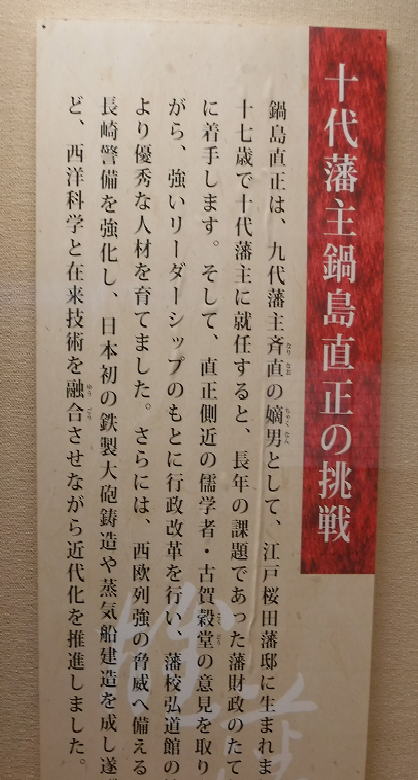 十代藩主鍋島直正の挑戦
鍋島直正は、九代藩主斉直の嫡男として、江戸桜田藩邸に生まれま
十七歳で十代藩主に就任すると、長年の課題であった藩財政のたて
に着手します。そして、直正側近の儒学者・古賀穀堂の意見を取り
がら、強いリーダーシップのもとに行政改革を行い、藩校弘道館の
より優秀な人材を育てました。さらには、西欧列強の脅威へ備える
長崎警備を強化し、日本初の鉄製大砲鋳造や蒸気船建造を成し遂
ど、西洋科学と在来技術を融合させながら近代化を推進しました。